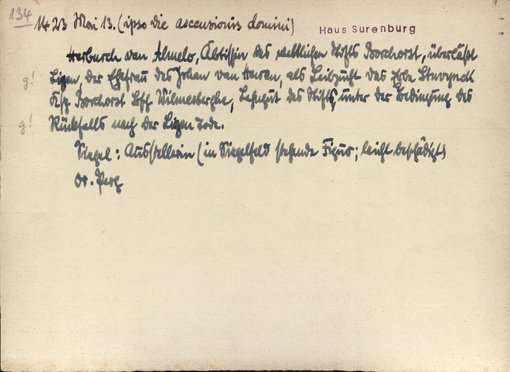 134
1423 Mai 13. (ipso die ascensionis domini)
Haus Surenburg
Herburch van Almelo, Äbtissin des weltlichen Stifts Borchorst, überläßt
g! Ligen, der Ehefrau des Johan van Heven, als Leibzucht das Erbe
Ksp. Borchorst Bsch. Wilmesberghe, Lehngut des Stifts, unter der Bedingung des
g! Rückfalls nach der Ligen Tode.
Siegel: Ausstellerin (in Siegelfeld stehende Figur; leicht beschädigt)
Or. Perg